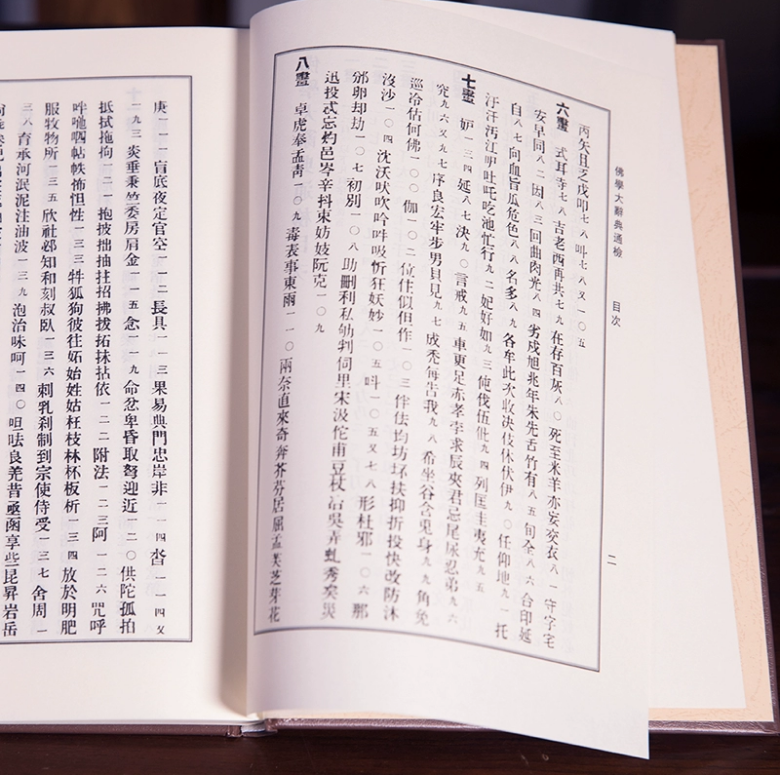 佛學大辭典通檢 目次
丙矢且乏戊叩七八叫七八又一〇五
六畫 式耳寺七八吉老西再共七九在存百灰八〇死至米羊亦妄交衣八一守字宅
安早同八二因八三回曲肉光八四劣成旭兆年朱先舌竹有八五旬全八六合印延
自八七向血旨瓜危色八八名多八九各牟此次收决伎休伏伊九〇任仰地九一托
汙汗汚江吐吒吃池忙行九二妃好如九三伐伍仳九四列匡圭夷充九五
七畫 妒一三四延八七決九〇言戒九五車更足赤孝孛求辰夾君忌尾尿忍弟九六
究九六又九七序良宏牢步男貝見九七成禿每吿我九八希坐谷含兎身九九角免
巡冷估何佛一〇〇伽一〇二位住似但作一〇三伴佉均坊坏扶抑折投快改防沐
沒沙一〇四沈沃吠吹吟吽吸忻狂妖妙一〇五一〇五又七八形杜邪一〇六那
邠卵却劫一〇七初別一〇八助刪利私劬判伺里宋汲佗甫豆杖吳弄虬秀矣災
迅投忒忘灼邑岑辛抖束妨妓阮克一〇九
八畫 卓虎奉孟靑一〇九毒表事東雨一一〇兩奈直來奇奔芥芬居屈孟芙芝芽花
二
庚一一一盲底夜定官空一一二長具一一三果易典門忠岸非一一四沓一一四又
一九三炎垂秉竺委房肩金一一五念一一九命忿卑昏取弩迎近一二〇供陀孤拍
抵拭拖拘一二一抱披拙抽拄招拂拔拓抹拈依一二二附法一二三阿一二六咒呼
咃呬帖帙怖怛性一三三狐狗彼往妬始姓姑枉枝林杯板析一三四放於明肥
服牧物所一三五欣社知和刻叔臥一三六刺乳刹制到宗使侍受一三七舍周一
三八育承河泯泥注油波一三九泡治味呵一四〇呾呿良羌昔亟函享些昆昇岩岳